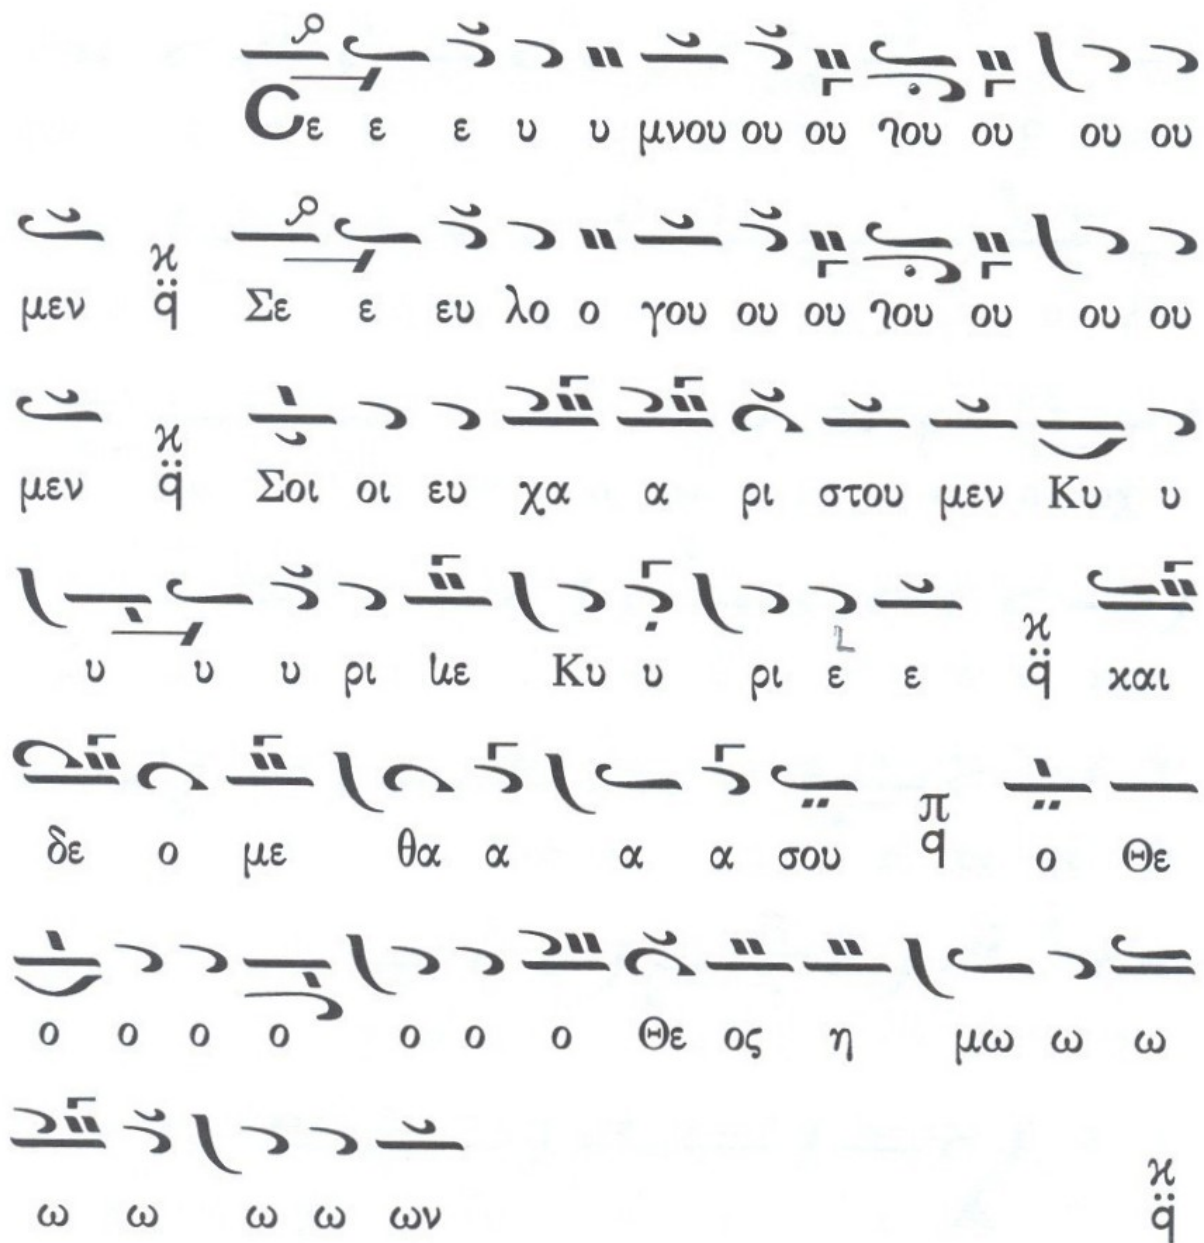 Σε ε ε υ υ μνου ου ου 𝼢ου ου ου ου
μεν ϰ q̈ Σε ε ευ λο ο γου ου ου 𝼢ου ου ου ου
μεν ϰ q̈ Σοι οι ευ χα α ρι στου μεν Κυ υ
υ υ υ ρι ιε Κυ υ ρι ε ε ϰ q̈ ϰαι
δε ο με θα α α α σου π q ο Θε
ο ο ο ο ο ο ο Θε ος η μω ω ω
ω ω ω ω ων ϰ q̈